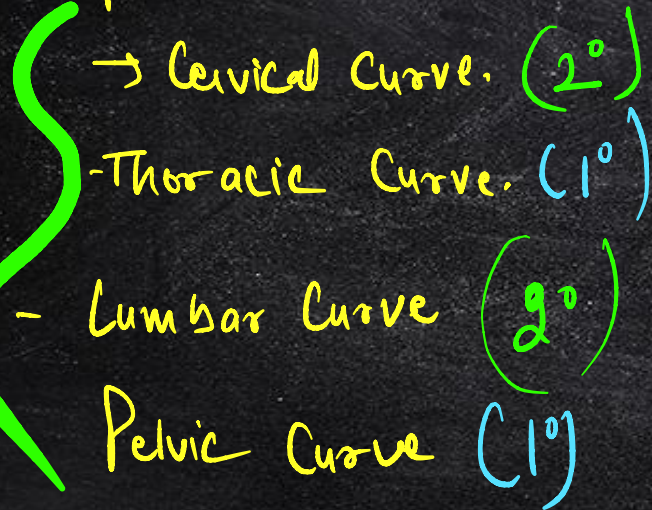 → Cervical Curve. (2°)
- Thoracic Curve. (1°)
- Lumbar Curve (2°)
Pelvic Curve (1°)